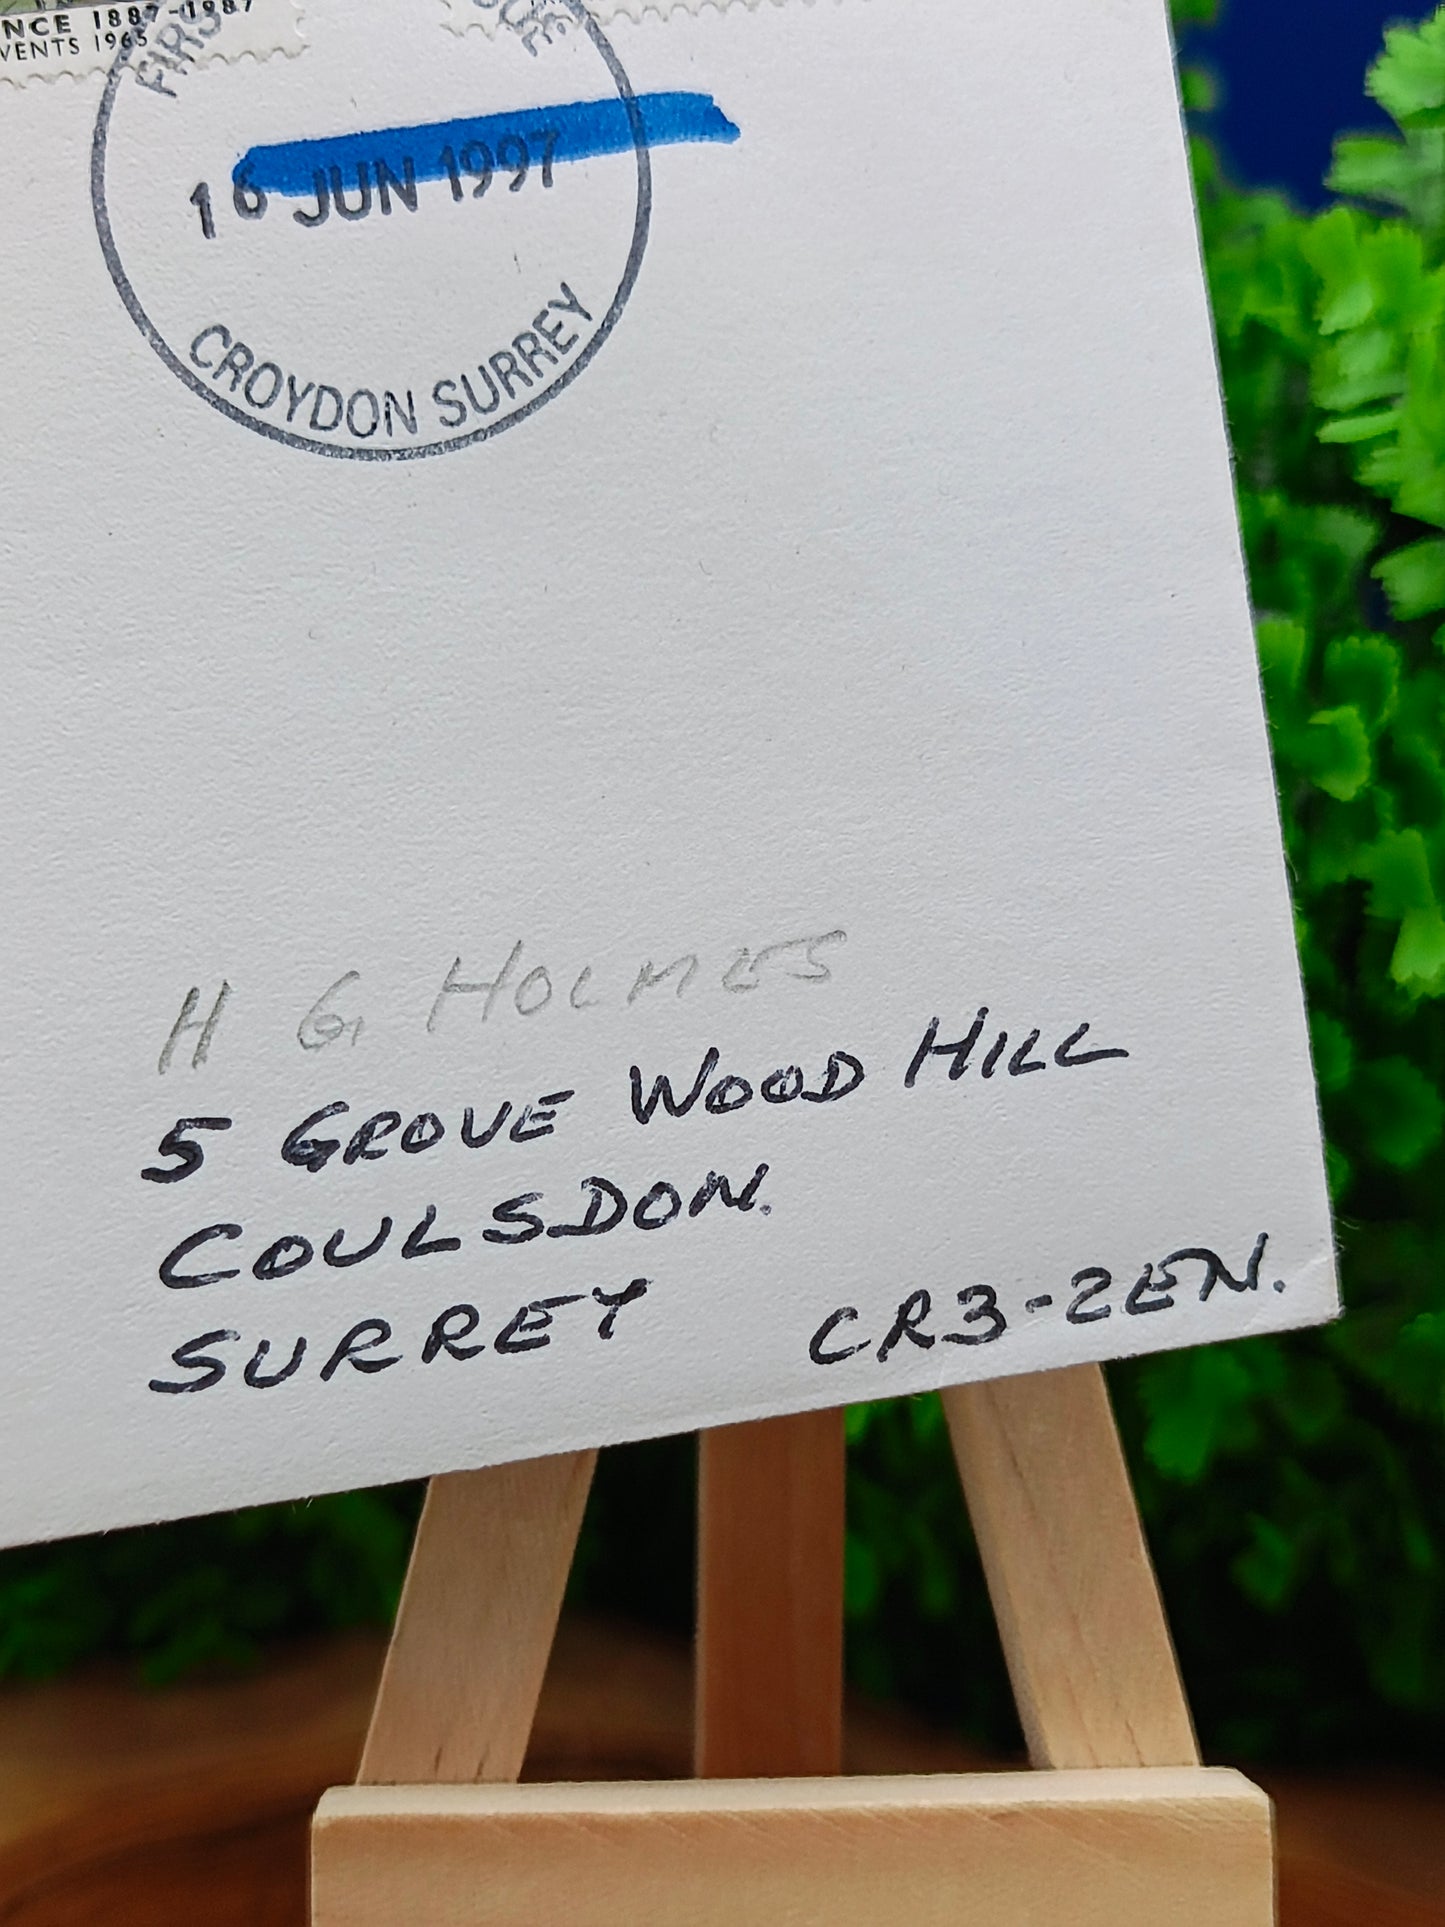 NCE 1887-1987
VENTS 1965
FIRS
16 JUN 1997
CROYDON SURREY
H G HOLMES
5 GROVE WOOD HILL
COULSDON.
SURREY CR3-2EN.